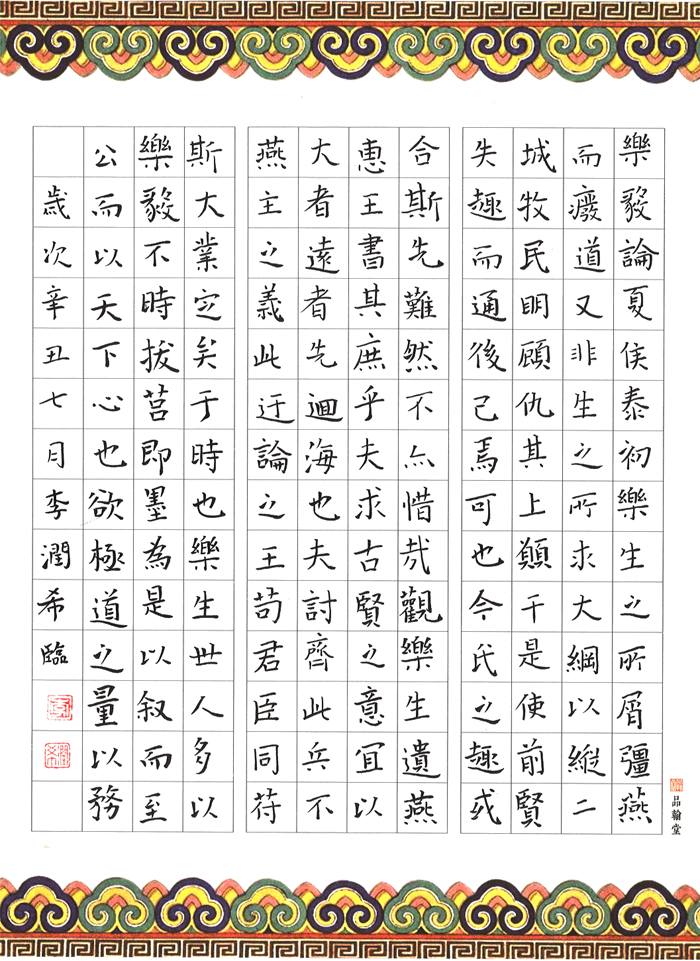 樂毅論夏侯泰初樂生之所屑彊燕
而癈道又非生之所求大綱以縱二
城牧民明顧仇其上願干是使前賢
失趣而通後己焉可也今氏之趣或
合斯先難然不亦惜哉觀樂生遺燕
惠王書其庶乎夫求古賢之意宜以
大者遠者先迴海也夫討齊此兵不
燕主之義此迂論之王苟君臣同符
斯大業定矣于時也樂生世人多以
樂毅不時拔莒即墨為是以叙而至
公而以天下心也欲極道之量以務
歲次辛丑七月李潤希臨
品翰堂